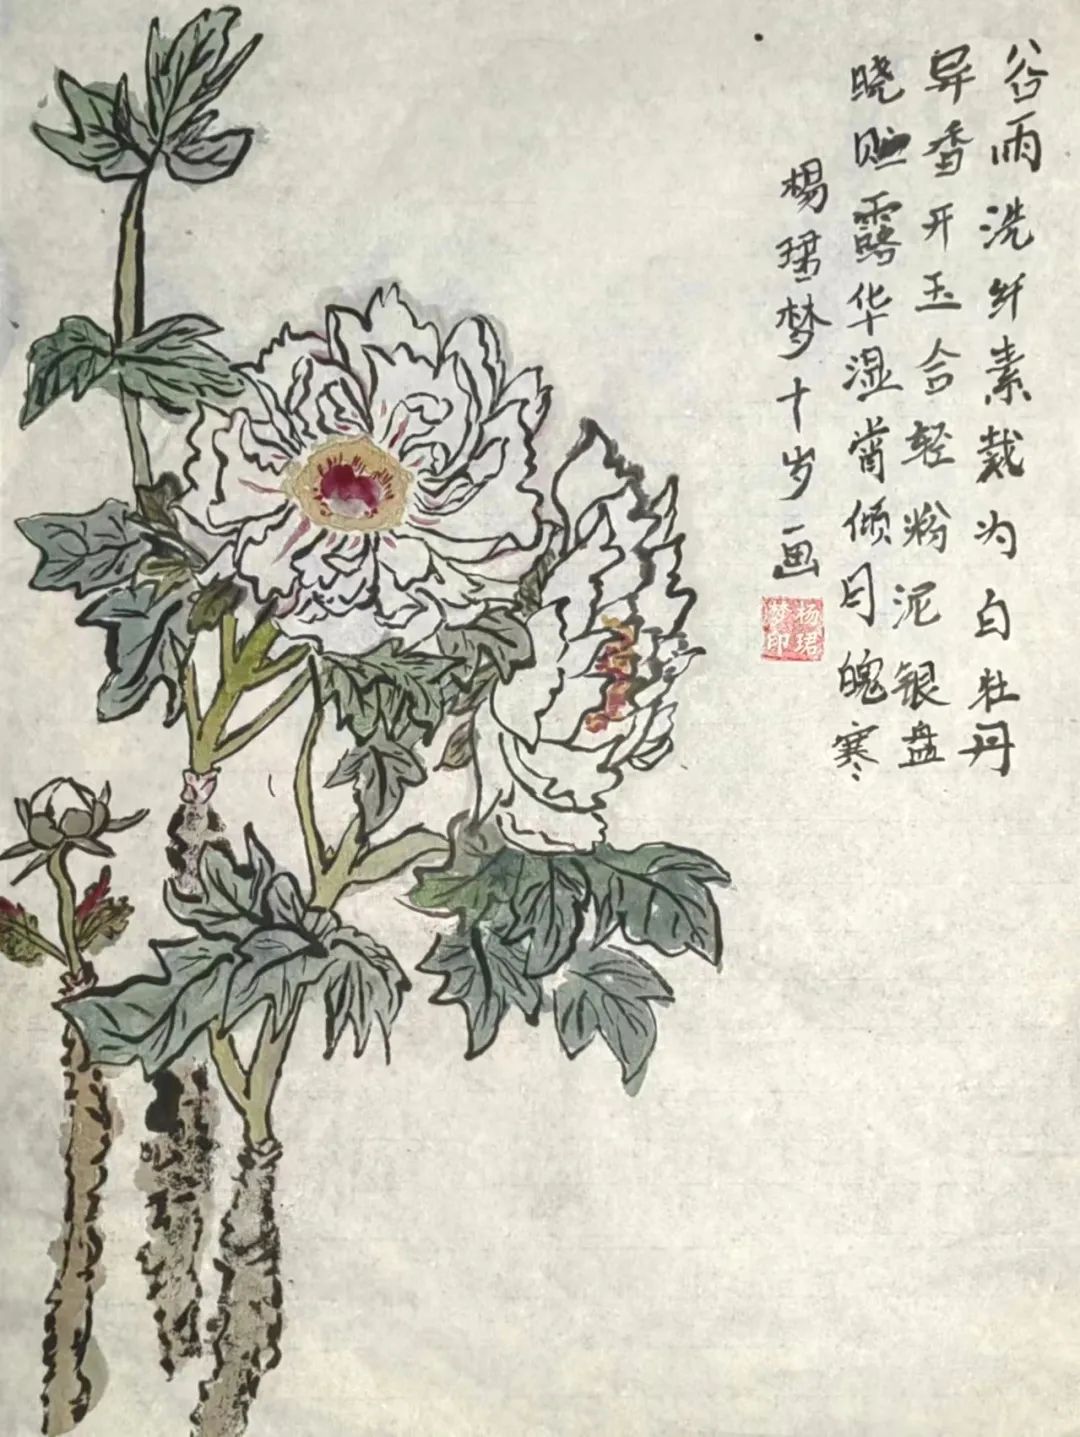 谷雨洗纤素裁为白牡丹
异香开玉合轻粉泥银盘
晓贮露华湿宵倾月魄寒
杨珺梦十岁画
杨珺梦印